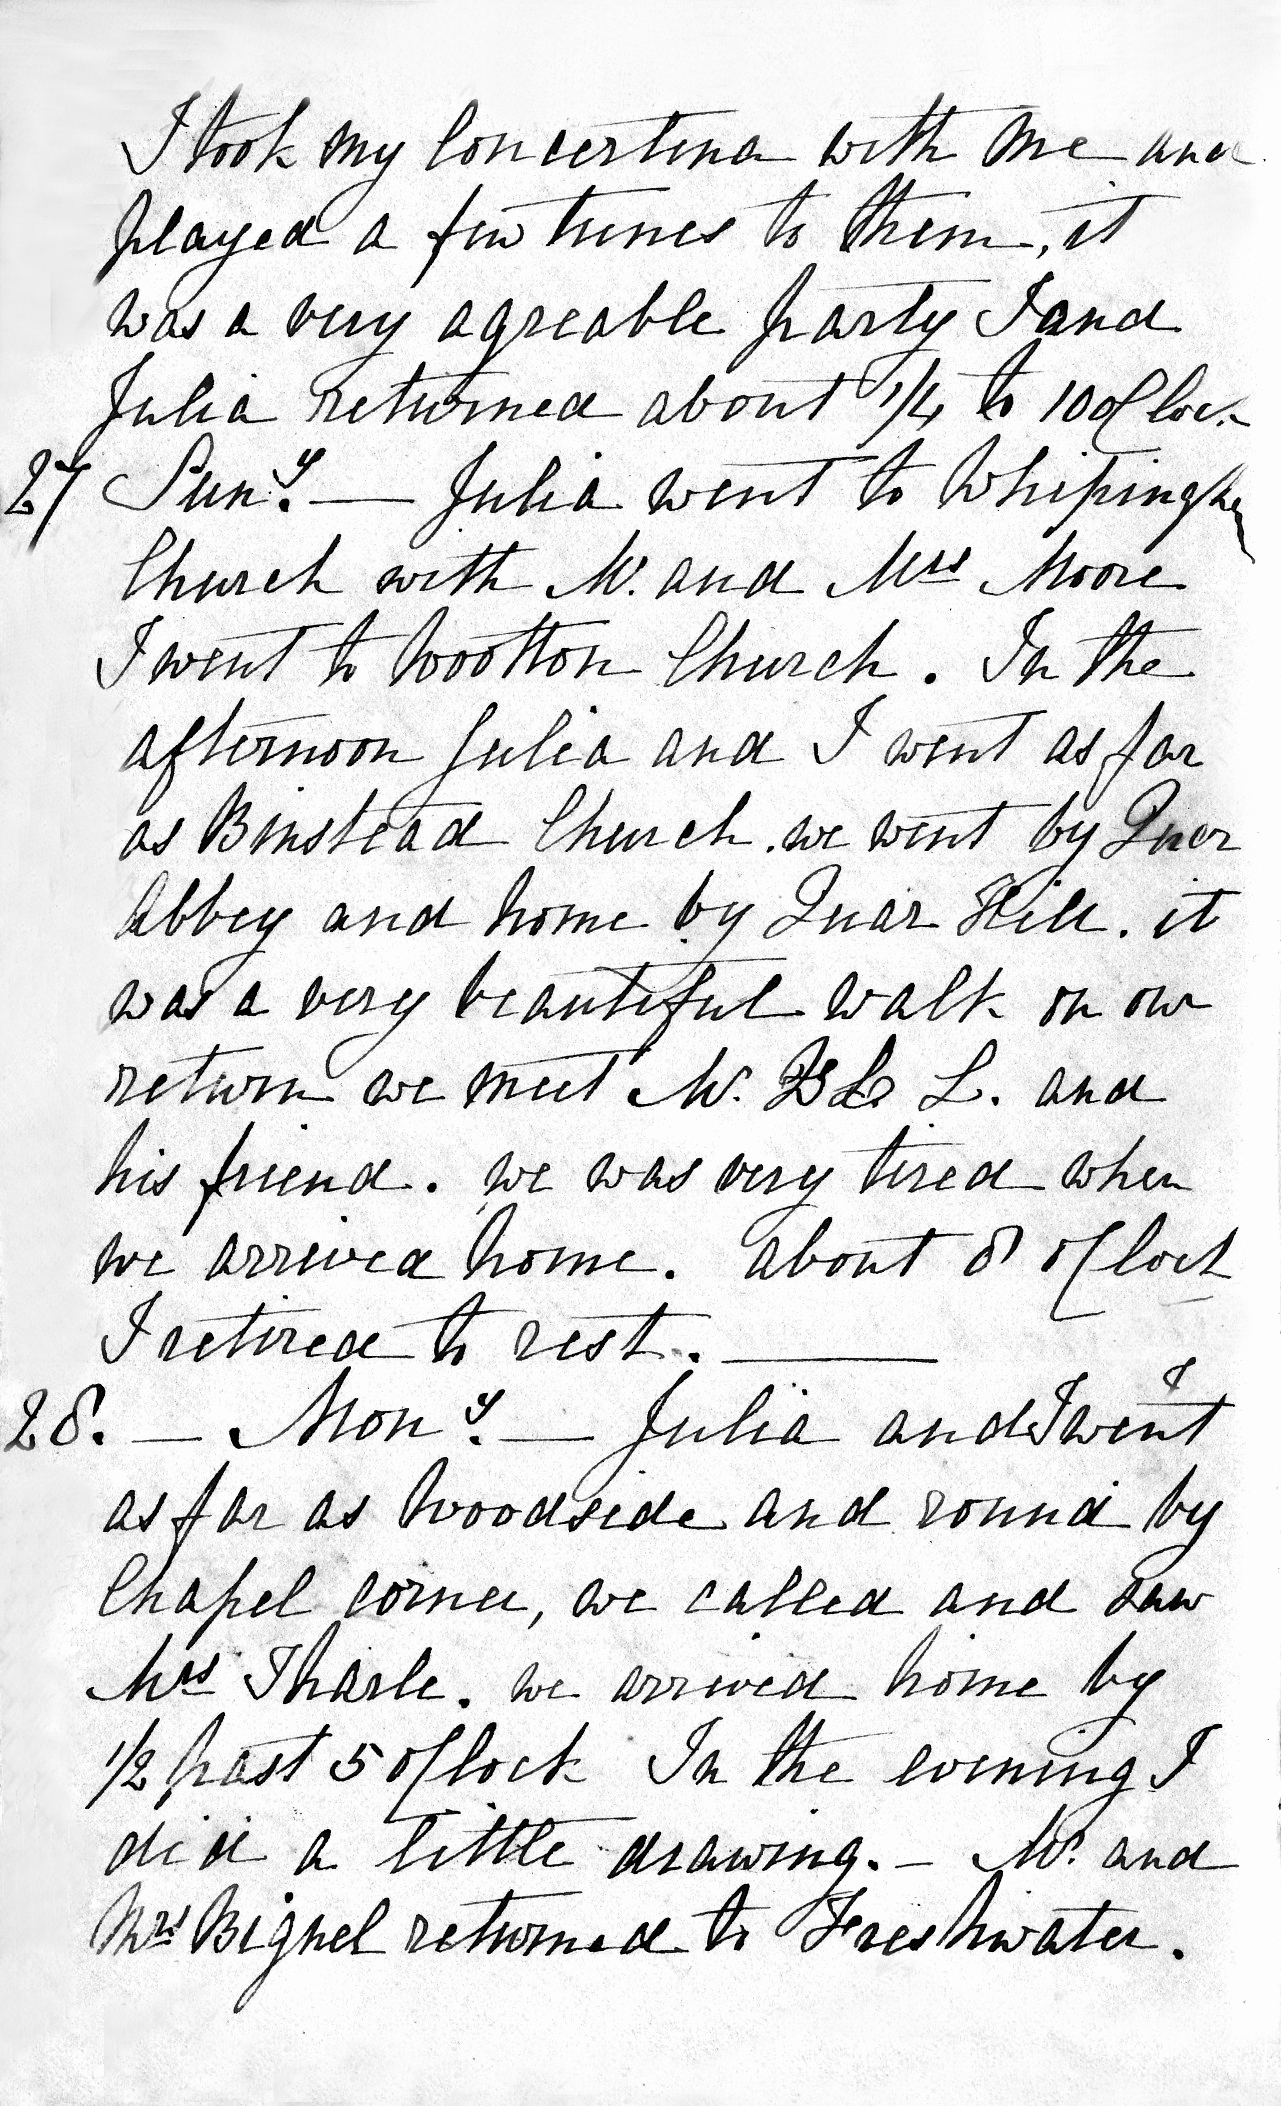 I took my Concertina with me and
played a few tunes to them, it
was a very agreable party I and
Julia returned about 1/4 to 10 oClock
27 Sun.y — Julia went to Whipingham
Church with Mr. and Mrs Moore
I went to Wootton Church. In the
afternoon Julia and I went as far
as Binstead Church. we went by Quar
Abbey and home by Quar Hill. it
was a very beautiful walk on our
return we meet Mr. L. and
his friend. we was very tired when
we arrived home. about 8 oClock
I retired to rest. —
28. — Mon.y — Julia and I went
as far as Woodside and round by
Chapel corner, we called and saw
Mrs Tharle. we arrived home by
1/2 past 5 oClock In the evening I
did a little drawing. — Mr. and
Mrs Bignel returned to Freshwater.